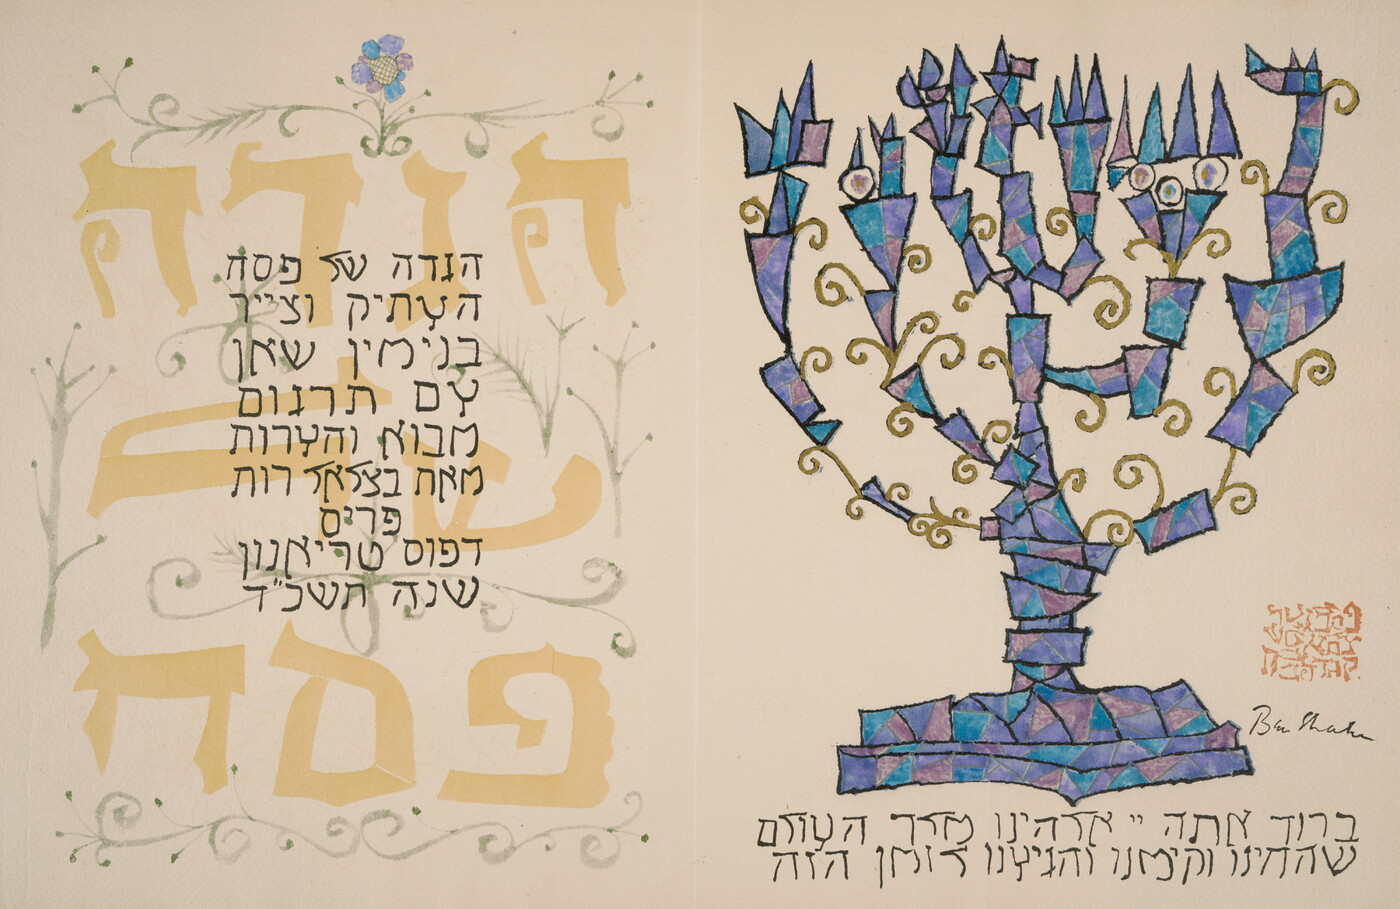 הגדה
של
פסח
הגדה של פסח
העתיק וצייר
בנימין שאן
עם תרגום
מבוא והערות
מאת בצלאל רות
פריס
דפוס טריאנון
שנה תשכ"ד
Ben Shahn
ברוך אתה יי אלהינו מלך העולם
שהחינו וקימנו והגיענו לזמן הזה